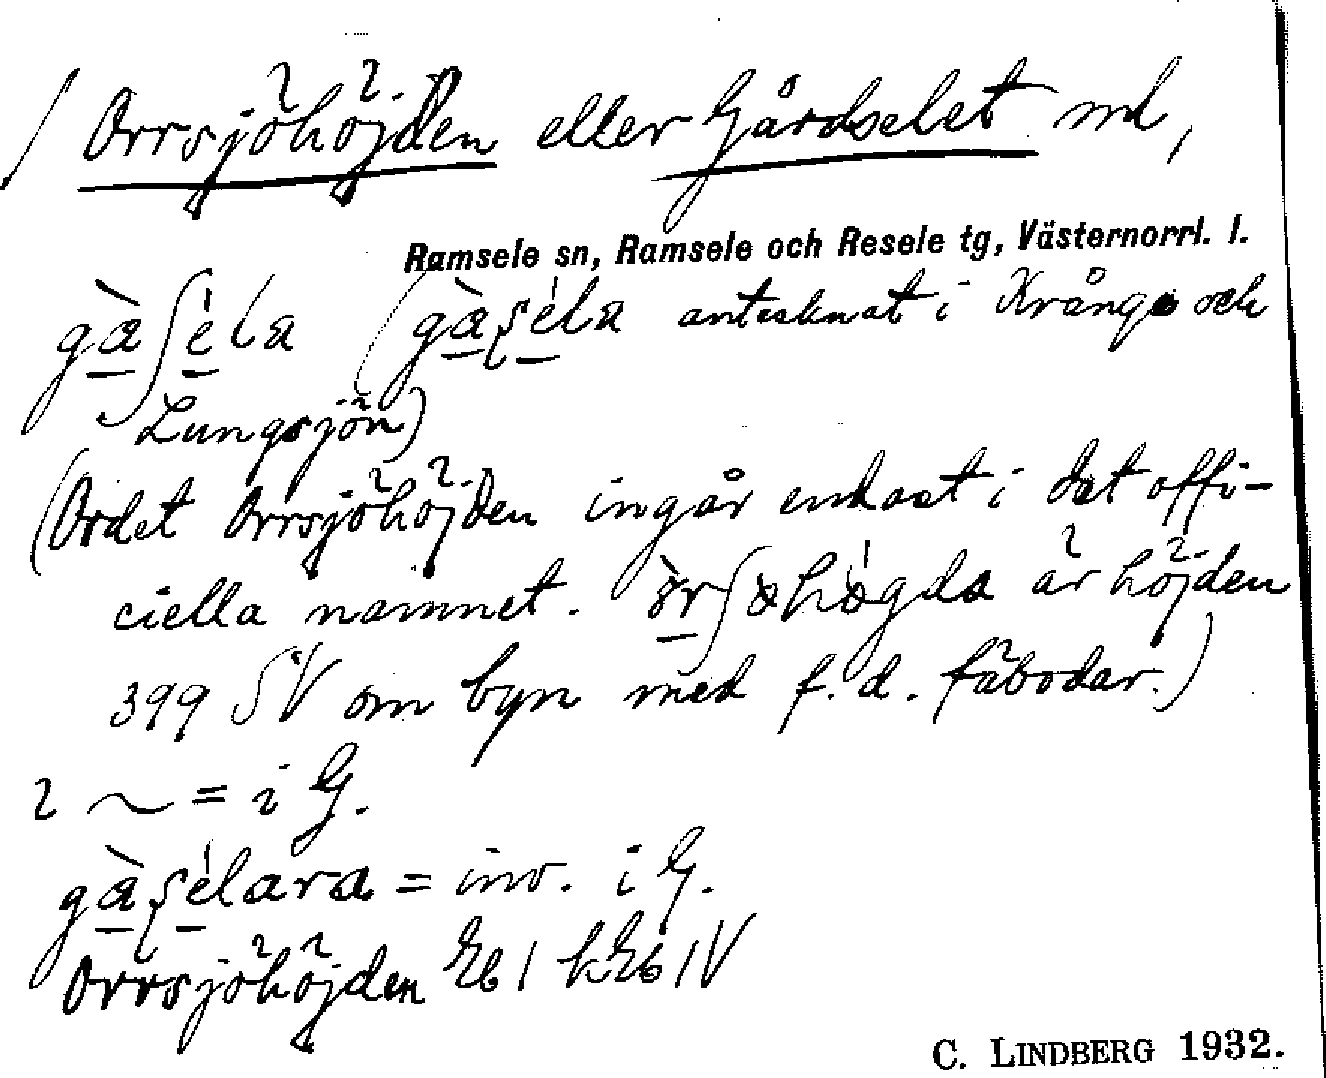 / Orrsjöhöjden eller Gårdselet nd,
Ramsele sn, Ramsele och Resele tg, Västernorrl. l.
gàʃéla (gàʂéla antecknat i Krånge och
Lungsjön)
(Ordet Orrsjöhöjden ingår endast i det offi-
ciella namnet. òrʃøhøgda är höjden
399 SV om byn med f.d. fäbodar.)
2 ~ = i G.
gàʂélara = inv. i G.
Orrsjöhöjden Eb 1 kEb IV
C. LINDBERG 1932.